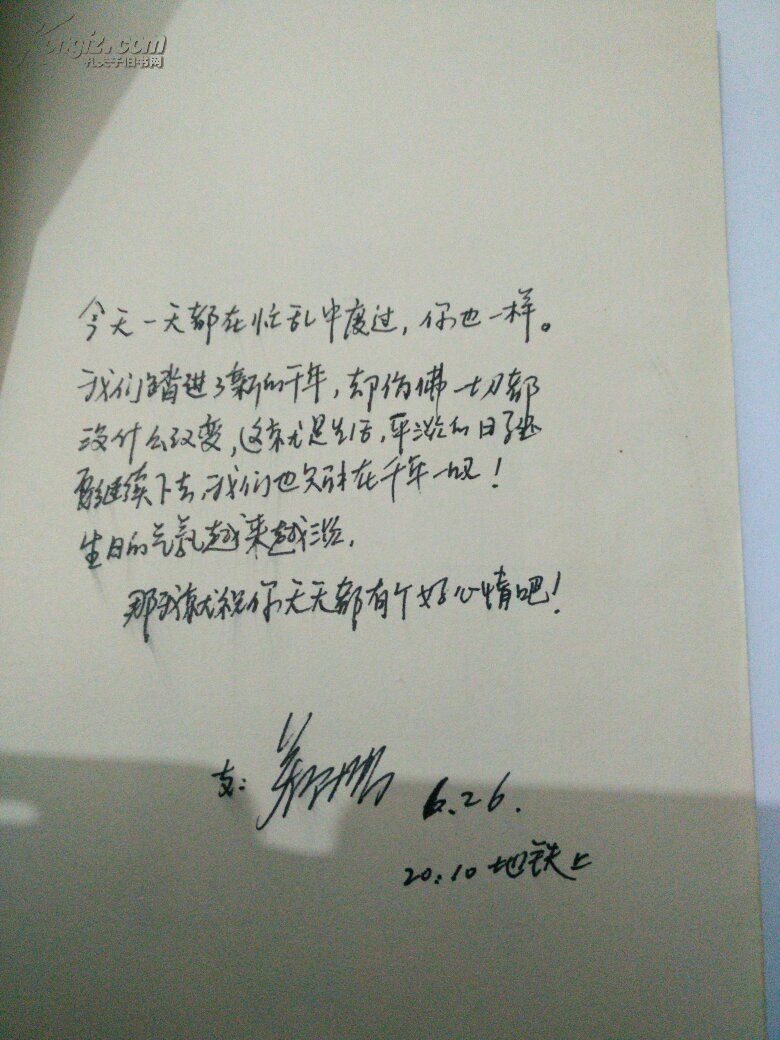 Kongfz.com
孔夫子旧书网
今天一天都在忙乱中度过，你也一样。
我们踏进了新的千年，却仿佛一切都
没什么改变，这就是生活，平淡的日子还
要继续下去，我们也只活在千年一叹！
生日的气氛越来越淡，
那我就祝你天天都有个好心情吧！
友：
6.26.
20:10 地铁上